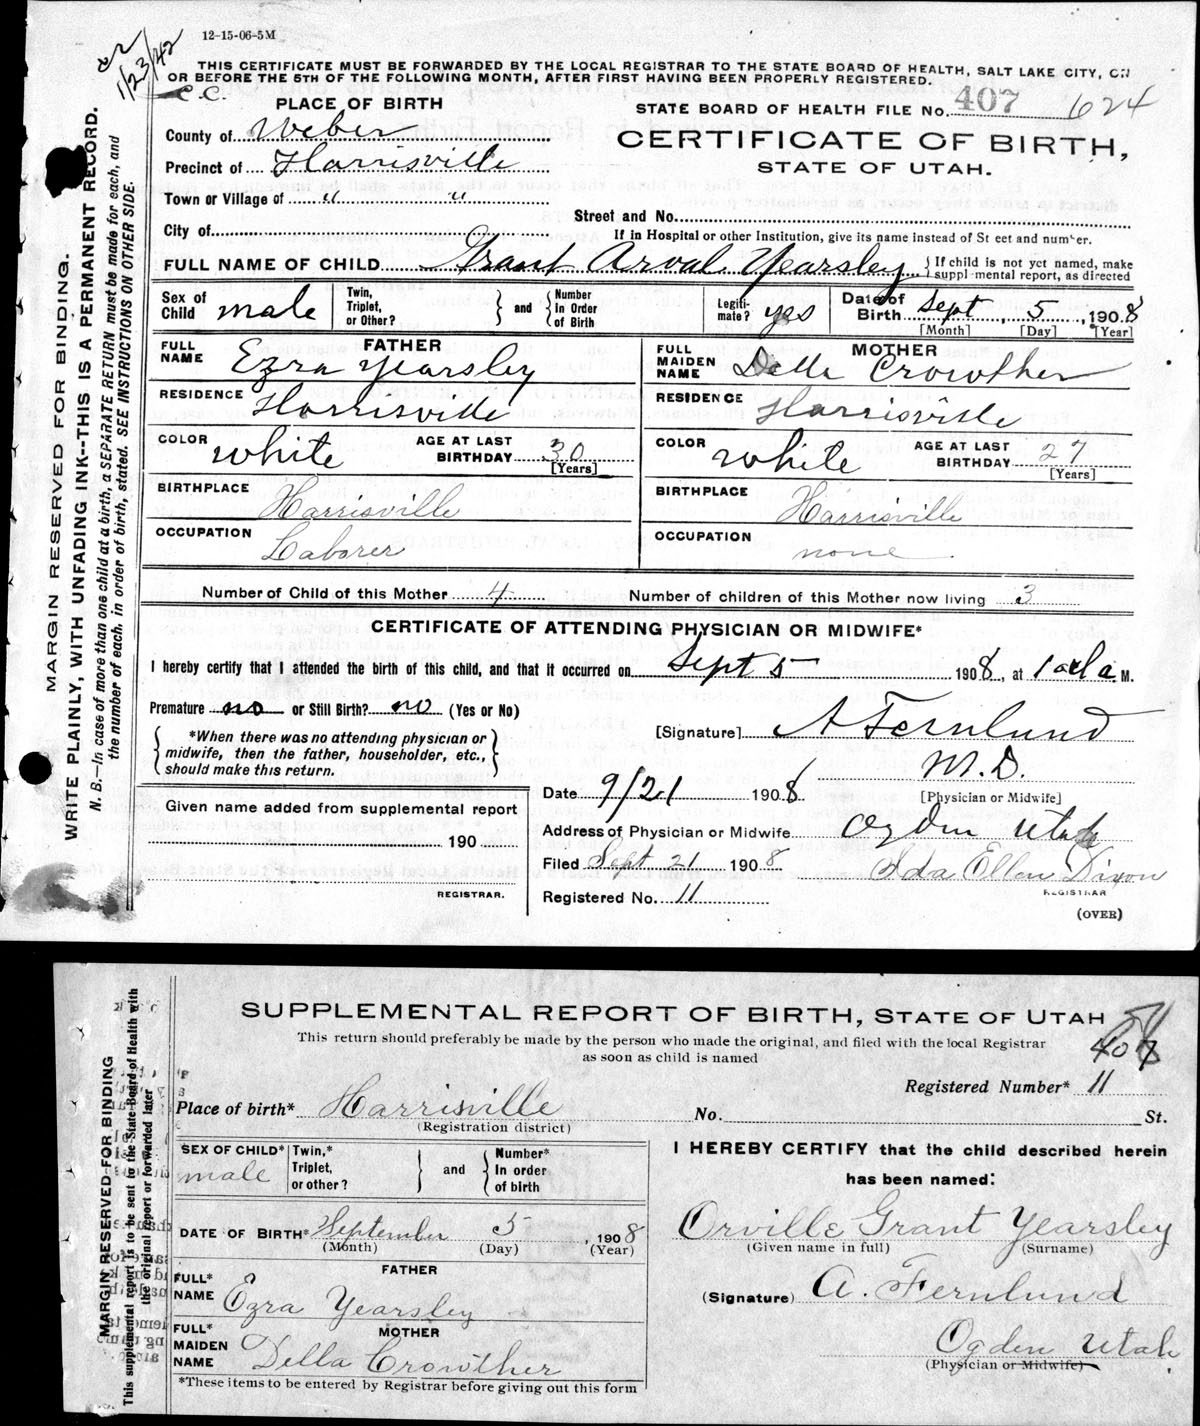 12-15-06-5M
1/23/42
C.C.
THIS CERTIFICATE MUST BE FORWARDED BY THE LOCAL REGISTRAR TO THE STATE BOARD OF HEALTH, SALT LAKE CITY, ON
OR BEFORE THE 5TH OF THE FOLLOWING MONTH, AFTER FIRST HAVING BEEN PROPERLY REGISTERED.
PLACE OF BIRTH
STATE BOARD OF HEALTH FILE No. 407 624
County of Weber
CERTIFICATE OF BIRTH,
Precinct of Harrisville
STATE OF UTAH.
Town or Village of " "
Street and No.
City of
If in Hospital or other Institution, give its name instead of St eet and number.
FULL NAME OF CHILD Grant Arval Yearsley { If child is not yet named, make
suppl mental report, as directed
Sex of Child male Twin, Triplet, or Other? } and { Number In Order of Birth Legiti-mate? yes Date of Birth Sept 5, 1908
[Month] [Day] [Year]
FATHER
MOTHER
FULL NAME Ezra Yearsley
FULL MAIDEN NAME Della Crowther
RESIDENCE Harrisville
RESIDENCE Harrisville
COLOR white AGE AT LAST BIRTHDAY 30 [Years]
COLOR white AGE AT LAST BIRTHDAY 27 [Years]
BIRTHPLACE Harrisville
BIRTHPLACE Harrisville
OCCUPATION Laborer
OCCUPATION none
Number of Child of this Mother 4 Number of children of this Mother now living 3
CERTIFICATE OF ATTENDING PHYSICIAN OR MIDWIFE*
I hereby certify that I attended the birth of this child, and that it occurred on Sept 5 1908, at a.M.
Premature no or Still Birth? no (Yes or No)
*When there was no attending physician or
midwife, then the father, householder, etc.,
should make this return.
[Signature] A Fernlund
M.D.
[Physician or Midwife]
Date 9/21 1908
Given name added from supplemental report
190
REGISTRAR.
Address of Physician or Midwife Ogden Utah
Filed Sept 21 1908 Ida Ellen Dixon
REGISTRAR
Registered No. 11
(OVER)
MARGIN RESERVED FOR BINDING.
WRITE PLAINLY, WITH UNFADING INK--THIS IS A PERMANENT RECORD.
N. B.--In case of more than one child at a birth, a SEPARATE RETURN must be made for each, and
the number of each, in order of birth, stated. SEE INSTRUCTIONS ON OTHER SIDE.
SUPPLEMENTAL REPORT OF BIRTH, STATE OF UTAH
This return should preferably be made by the person who made the original, and filed with the local Registrar
as soon as child is named
407
Registered Number* 11
Place of birth* Harrisville No. St.
(Registration district)
SEX OF CHILD* male Twin,* Triplet, or other? } and { Number* In order of birth
I HEREBY CERTIFY that the child described herein
has been named:
DATE OF BIRTH* September 5, 1908
(Month) (Day) (Year)
Orville Grant Yearsley
(Given name in full) (Surname)
FATHER
FULL* NAME Ezra Yearsley
(Signature) A. Fernlund
MOTHER
FULL* MAIDEN NAME Della Crowther
Ogden Utah
(Physician or Midwife)
*These items to be entered by Registrar before giving out this form
MARGIN RESERVED FOR BINDING
This supplemental report is to be sent to the State Board of Health with
the original report or forwarded later